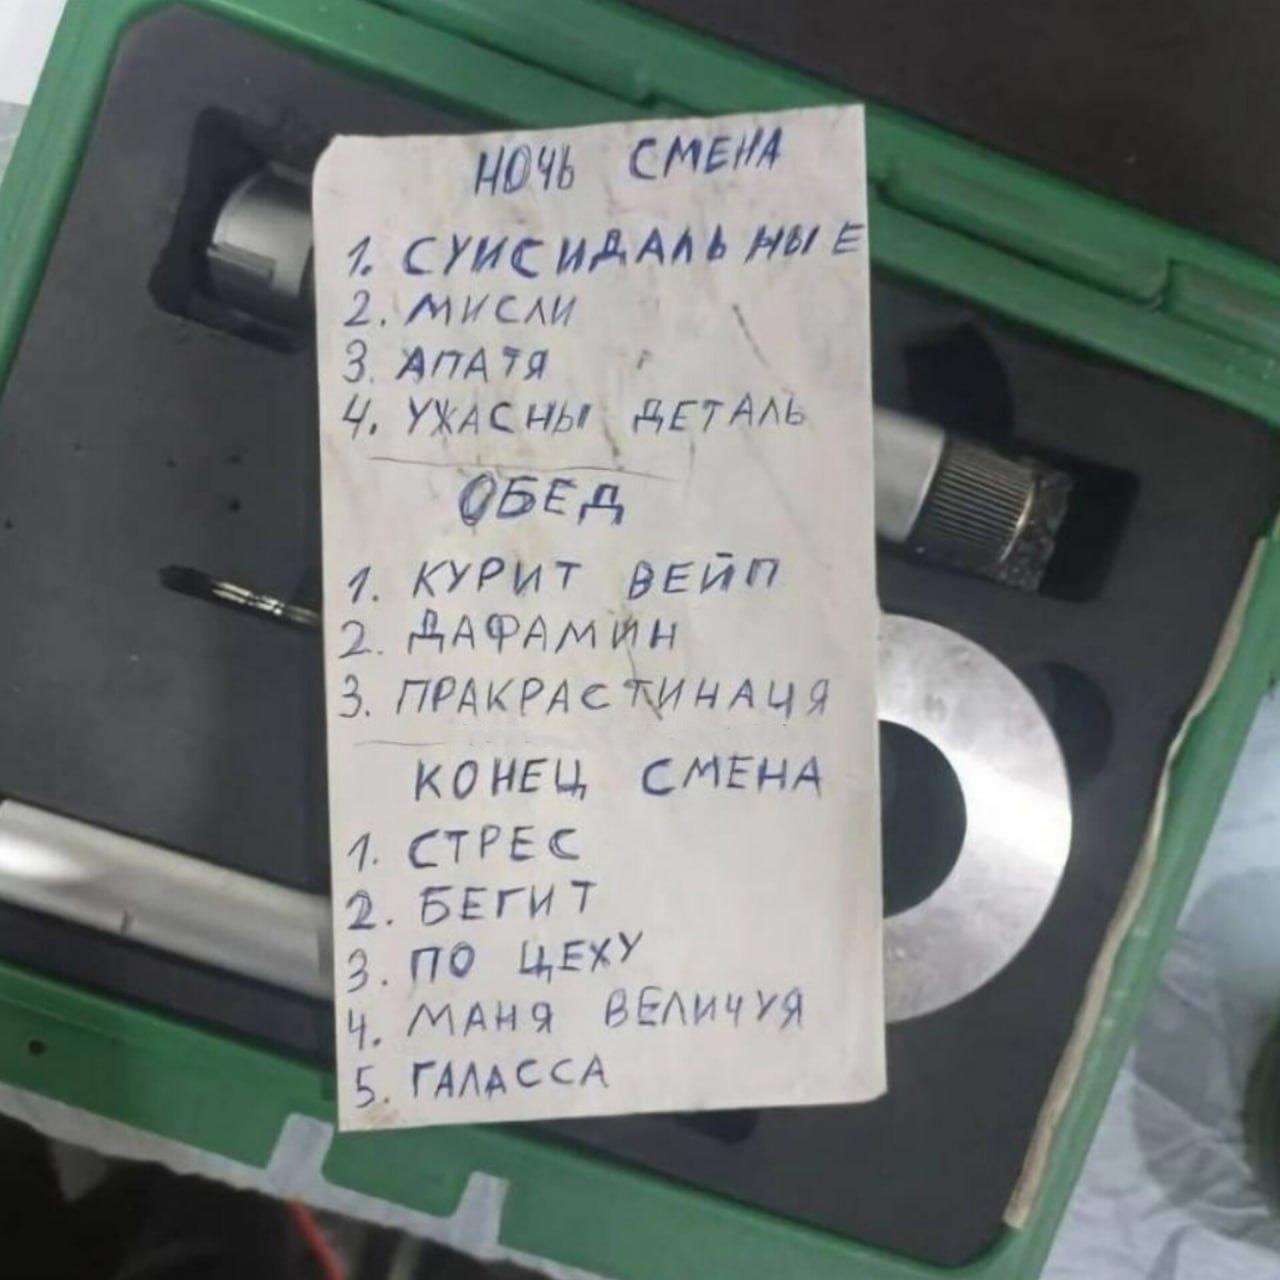 НОЧЬ СМЕНА
1. СУИСИДАЛЬНЫЕ
2. МИСЛИ
3. АПАТЯ
4. УЖАСНЫ ДЕТАЛЬ
ОБЕД
1. КУРИТ ВЕЙП
2. ДАФАМИН
3. ПРАКРАСТИНАЦЯ
КОНЕЦ СМЕНА
1. СТРЕС
2. БЕГИТ
3. ПО ЦЕХУ
4. МАНЯ ВЕЛИЧУЯ
5. ГАЛАССА